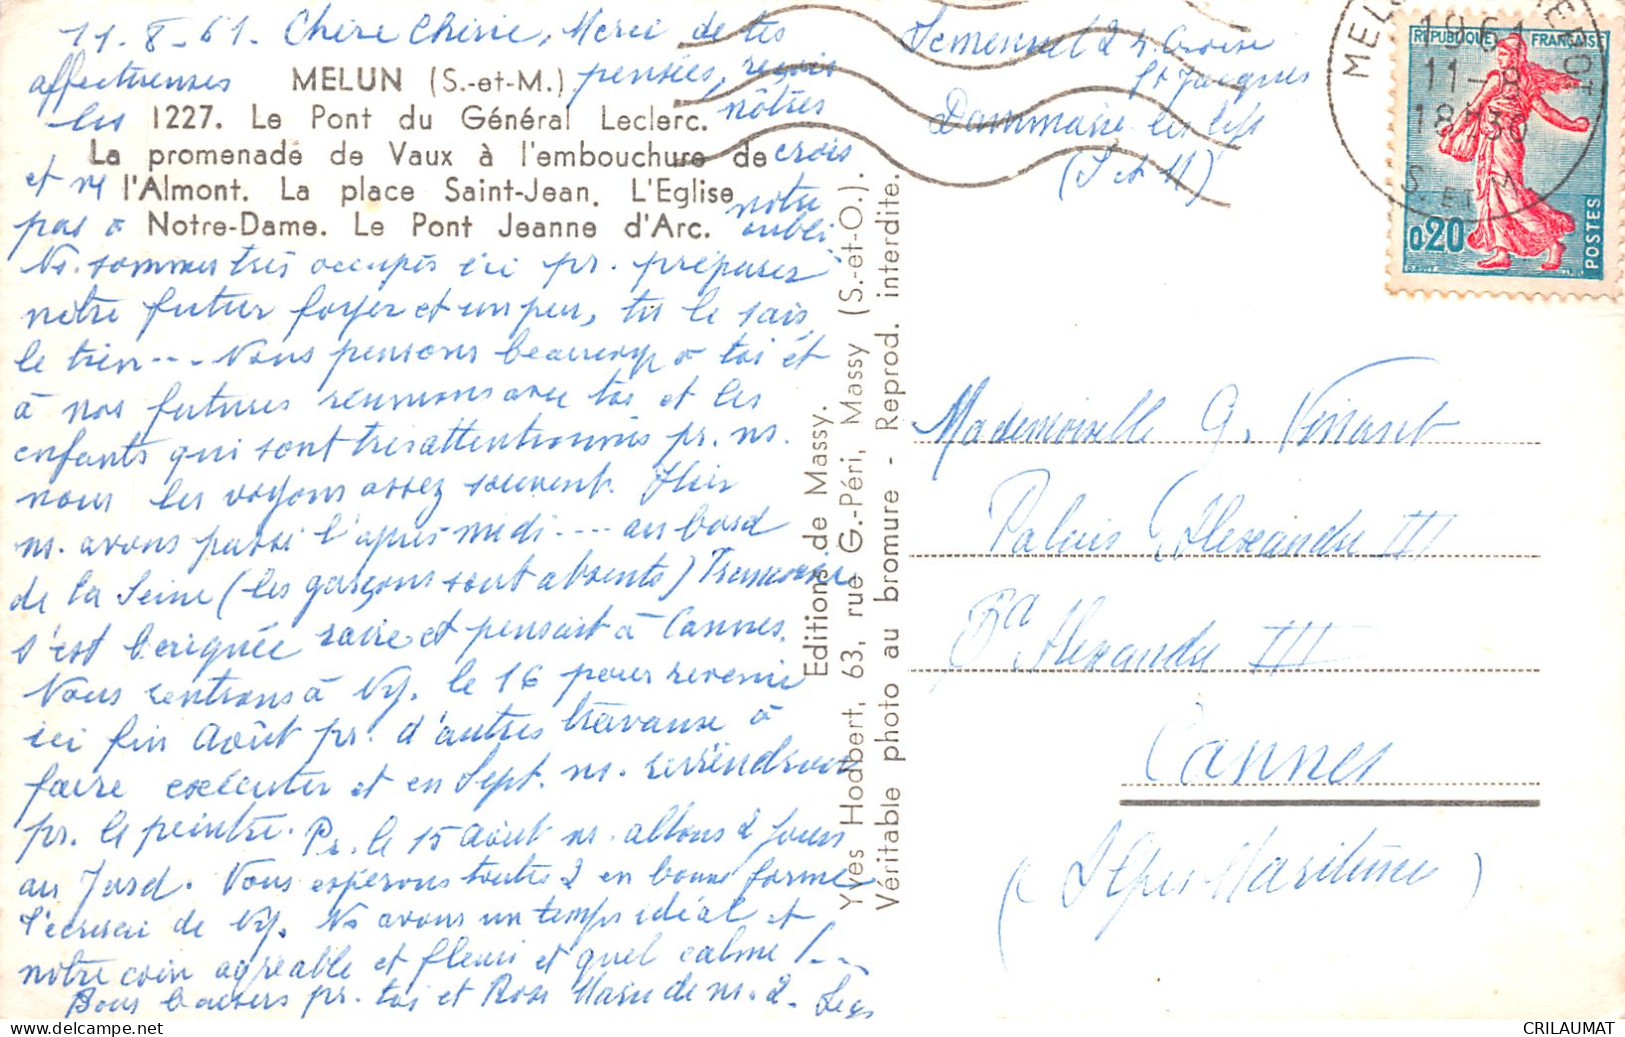 11-8-61. Chère Chérie, Merci de tes
affectueuses pensées, reçois
les nôtres
et ne crois
pas à notre oubli.
MELUN (S.-et-M.)
1227. Le Pont du Général Leclerc.
La promenade de Vaux à l'embouchure de
l'Almont. La place Saint-Jean. L'Eglise
Notre-Dame. Le Pont Jeanne d'Arc.
Ns. sommes très occupés ici pr. préparer
notre futur foyer et un peu, tu le sais,
le tien--- Nous pensons beaucoup à toi et
à nos futures réunions avec toi et les
enfants qui sont très attentionnés pr. ns.
nous les voyons assez souvent. Hier
ns. avons passé l'après-midi --- au bord
de la Seine (les garçons sont absents)
s'est baignée et pensait à Cannes.
Nous rentrons à le 16 pour revenir
ici fin Août pr. d'autres travaux à
faire exécuter et en Sept. ns.
pr. le peintre. Pr. le 15 Août ns. allons 2 jours
au Nous espérons toutes 2 en bonne forme
de Ns avons un temps idéal et
notre coin agréable et fleuri et quel calme !--
Bons baisers pr. toi et Rose Marie de ns. 2.
Editions de Massy.
Yves Hodbert, 63, rue G.-Péri, Massy (S.-et-O.).
Véritable photo au bromure - Reprod. interdite.
24 Croix
St Jacques
Dammarie les Lys
(S et M)
MELUN
1961
11-8
18H30
S. ET M.
REPUBLIQUE FRANÇAISE
0,20
POSTES
Mademoiselle G.
Palais Alexandre III
Bd Alexandre III
Cannes
(Alpes-Maritimes)
CRILAUMAT